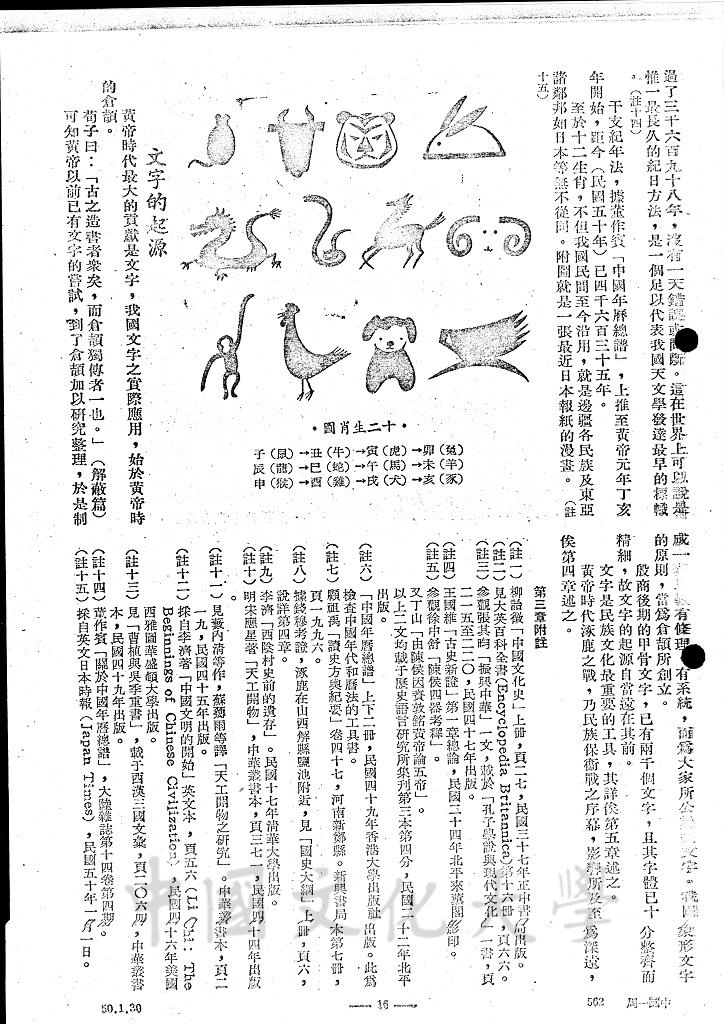 過了三千六百九十八年，沒有一天錯誤或間斷。這在世界上可以說是
惟一最長久的紀日方法，是一個足以代表我國天文學發達最早的標幟
。（註十四）
干支紀年法，據董作賓「中國年曆總譜」，上推至黃帝元年丁亥
年開始，距今（民國五十年）已四千六百三十五年。
至於十二生肖，不但我國民間至今沿用，就是邊疆各民族及東亞
諸鄰邦如日本等無不從同。附圖就是一張最近日本報紙的漫畫。（註
十五）
圖肖生二十
子（鼠）→丑（牛）→寅（虎）→卯（兔）
辰（龍）→巳（蛇）→午（馬）→未（羊）
申（猴）→酉（雞）→戌（犬）→亥（豕）
文字的起源
黃帝時代最大的貢獻是文字，我國文字之實際應用，始於黃帝時
的倉頡。
荀子曰：「古之造書者衆矣，而倉頡獨傳者一也。」（解蔽篇）
可知黃帝以前已有文字的嘗試，到了倉頡加以研究整理，於是制
成一 有條理 有系統，而爲大家所公 文字。我國象形文字
的原則，當爲倉頡所創立。
殷商後期的甲骨文字，已有兩千個文字，且其字體已十分整齊而
精細，故文字的起源自當遠在其前。
文字是民族文化最重要的工具，其詳俟第五章述之。
黃帝時代涿鹿之戰，乃民族保衞戰之序幕，影響所及至爲深遠，
俟第四章述之。
第三章附註
（註一）柳詒徵「中國文化史」上冊，頁二七，民國三十七年正中書局出版。
（註二）見大英百科全書(Encyclopedia Britannica)第十六冊，頁六六。
（註三）參觀張其昀「振興中華」一文，載於「孔子學說與現代文化」一書，頁
二一五至二二〇，民國四十七年出版。
（註四）王國維「古史新證」第一章總論，民國二十四年北平來薰閣影印。
（註五）參觀徐中舒「陳侯四器考釋」。
又丁山「由陳侯因資敦銘黃帝論五帝」。
以上二文均載于歷史語言研究所集刊第三本第四分，民國二十二年北平
出版。
（註六）「中國年曆總譜」上下二冊，民國四十九年香港大學出版社出版。此爲
檢查中國年代和曆法的工具書。
（註七）顧祖禹「讀史方輿紀要」卷四十七，河南新鄭縣。新興書局本第七冊，
頁一九九六。
（註八）據錢穆考證，涿鹿在山西解縣鹽池附近，見「國史大綱」上冊，頁六。
說詳第四章。
（註九）李濟「西陰村史前的遺存」。民國十七年清華大學出版。
（註十）明宋應星著「天工開物」，中華叢書本，頁三七一，民國四十四年出版
。
（註十一）見藪內清等作，蘇薌雨等譯「天工開物之研究」。中華叢書本，頁二
一九，民國四十五年出版。
（註十二）採自李濟著「中國文明的開始」英文本，頁五六(Li Chi: The
Beginnings of Chinese Civilization)，民國四十六年美國
西雅圖華盛頓大學出版。
（註十三）見「曹植與吳季重書」，載于西漢三國文彙，頁二〇六四，中華叢書
本，民國四十九年出版。
（註十四）董作賓「關於中國年曆總譜」，大陸雜誌第十四卷第四期。
（註十五）採自英文日本時報(Japan Times)，民國五十年一月一日。
50.1.30
— 16 —
562 周一國中
中國文化大學